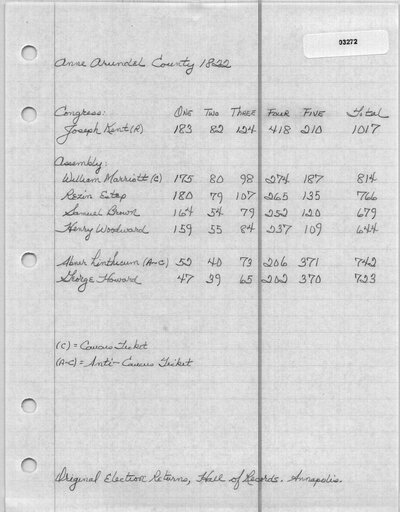 03272
Anne Arundel County 1822
Congress: ONE TWO THREE FOUR FIVE Total
Joseph Kent (R) 183 82 124 418 210 1017
Assembly:
William Marriott (C) 175 80 98 274 187 814
Rezin Estep 180 79 107 265 135 766
Samuel Brown 164 54 79 252 120 679
Henry Woodward 159 55 84 237 109 644
Abner Linthicum (A-C) 52 40 73 206 371 742
George Howard 47 39 65 202 370 723
(C) = Caucus Ticket
(A-C) = Anti-Caucus Ticket
Original Election Returns, Hall of Records. Annapolis.